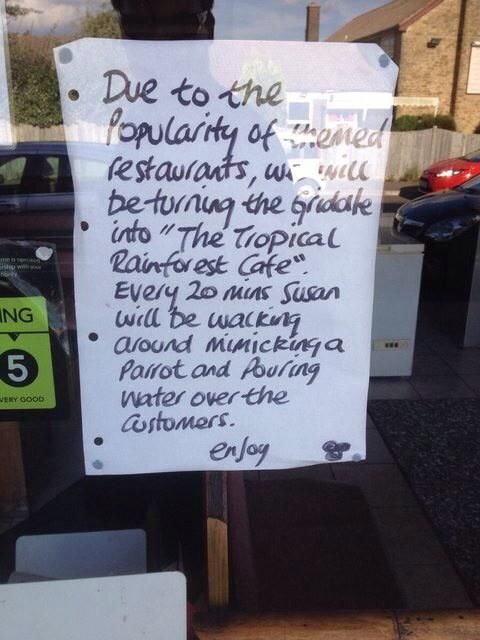 Due to the
Popularity of themed
restaurants, we will
be turning the Gridale
into "The Tropical
Rainforest Cafe".
Every 20 mins Susan
will be walking
around mimicking a
Parrot and Pouring
water over the
Customers.
enjoy
ING
5
VERY GOOD